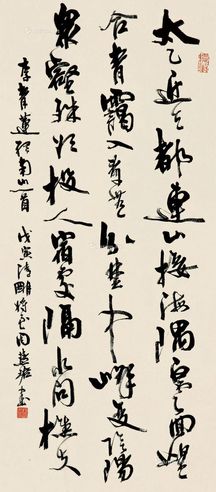 太乙近天都連山接海隅白雲回望
合青靄入看無分埜中峰變陰陽
眾壑殊欲投人宿處隔水問樵夫
李青蓮終南山一首 戊寅清明將至周慧珺書